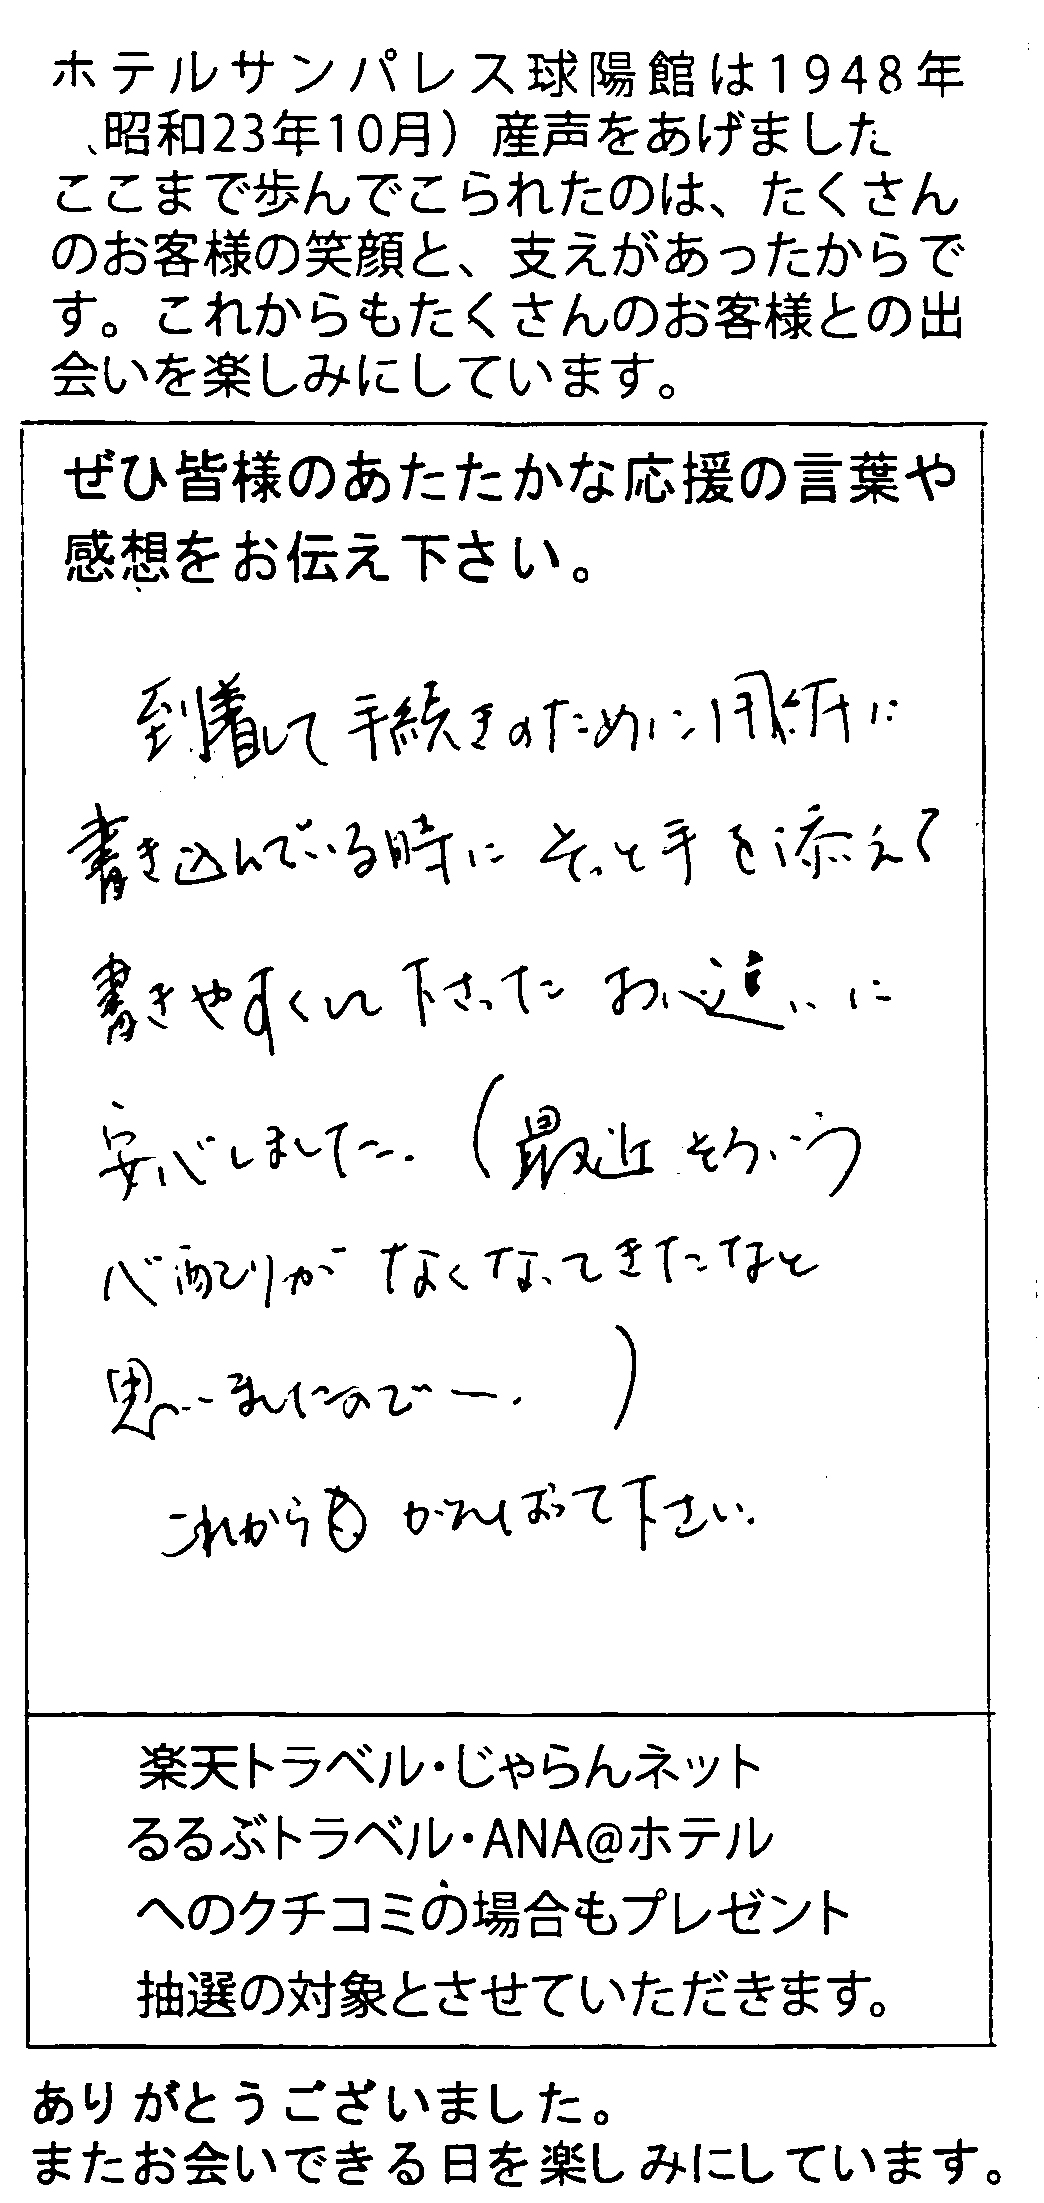 ホテルサンパレス球陽館は1948年
、昭和23年10月）産声をあげました
ここまで歩んでこられたのは、たくさん
のお客様の笑顔と、支えがあったからで
す。これからもたくさんのお客様との出
会いを楽しみにしています。
ぜひ皆様のあたたかな応援の言葉や
感想をお伝え下さい。
到着して手続きのために用紙に
書き込んでいる時にそっと手を添えて
書きやすくして下さったお心遣いに
安心しました。(最近そういう
心配りがなくなってきたなと
思いましたので一。)
これからもがんばって下さい。
楽天トラベル・じゃらんネット
るるぶトラベル・ANA@ホテル
へのクチコミの場合もプレゼント
抽選の対象とさせていただきます。
ありがとうございました。
またお会いできる日を楽しみにしています。